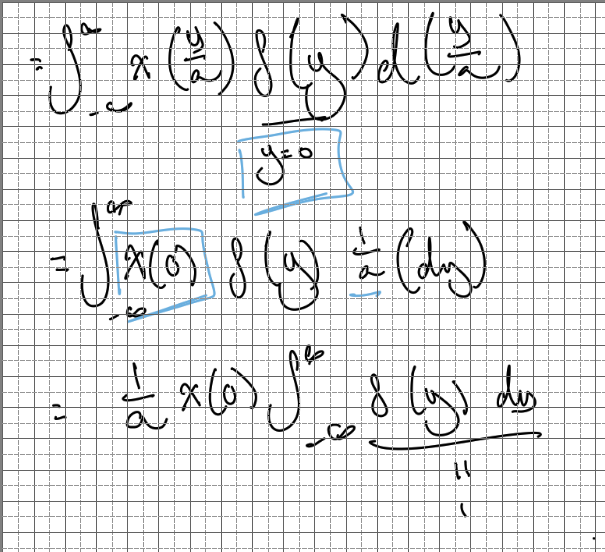 = ∫_{-∞}^{∞} x(y/a) δ(y) d(y/a)
y=0
= ∫_{-∞}^{∞} x(0) δ(y) 1/a (dy)
= 1/a x(0) ∫_{-∞}^{∞} δ(y) dy
"
1